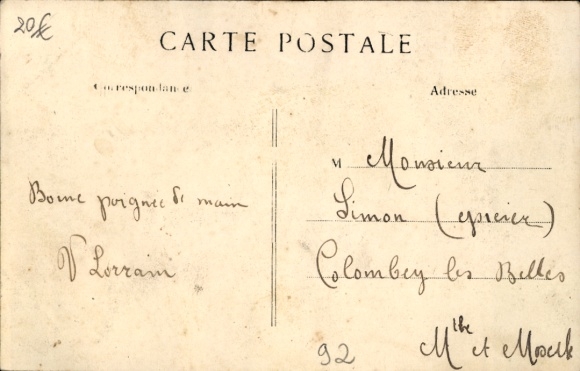 20€
CARTE POSTALE
Correspondance
Adresse
Bonne poignée de main
V Lorrain
M Monsieur
Simon (epicier)
Colombey les Belles
Mthe et Moselle
92